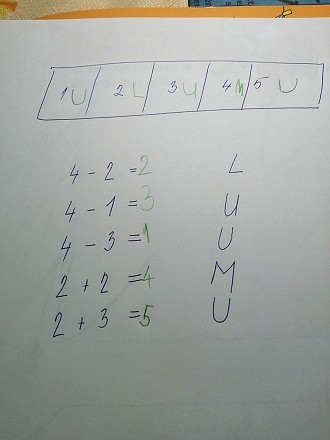 1 U 2 L 3 U 4 M 5 U
4 - 2 = 2 L
4 - 1 = 3 U
4 - 3 = 1 U
2 + 2 = 4 M
2 + 3 = 5 U